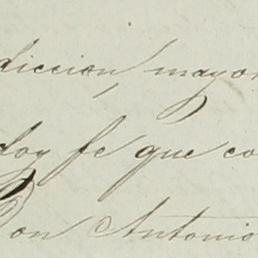 diccion, mayor
doy fe que co
Don Antonio